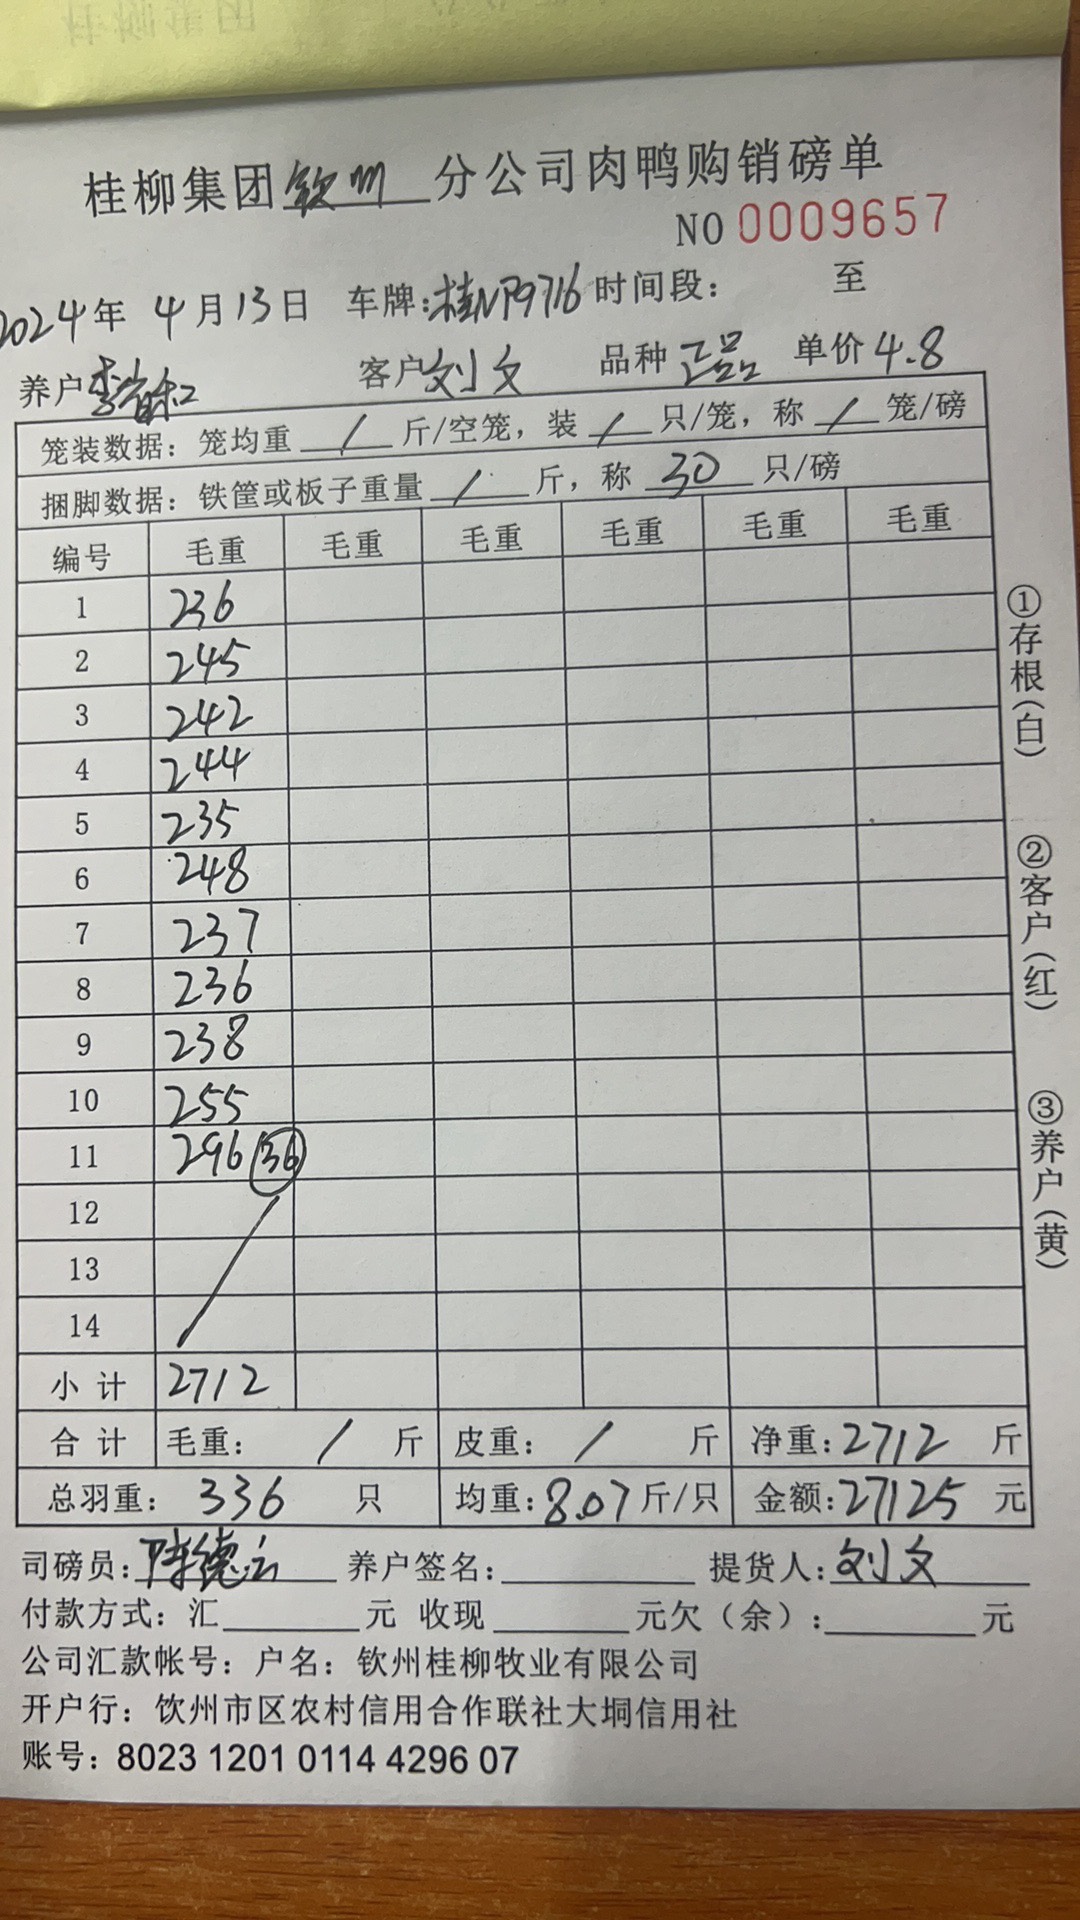 桂柳集团钦州分公司肉鸭购销磅单
NO 0009657
2024年 4月13日 车牌:桂NP9716 时间段: 至
养户 李 客户 刘文 品种 正品 单价 4.8
笼装数据: 笼均重 / 斤/空笼, 装 / 只/笼, 称 / 笼/磅
捆脚数据: 铁筐或板子重量 / 斤, 称 30 只/磅
编号 毛重 毛重 毛重 毛重 毛重 毛重
1 236
2 245
3 242
4 244
5 235
6 248
7 237
8 236
9 238
10 255
11 296 (36)
12
13
14
小计 2712
合计 毛重: / 斤 皮重: / 斤 净重: 2712 斤
总羽重: 336 只 均重: 8.07 斤/只 金额: 27125 元
司磅员: 陈德云 养户签名: 提货人: 刘文
付款方式: 汇 元 收现 元欠(余): 元
公司汇款帐号: 户名: 钦州桂柳牧业有限公司
开户行: 钦州市区农村信用合作联社大垌信用社
账号: 8023 1201 0114 4296 07
①存根(白)
②客户(红)
③养户(黄)